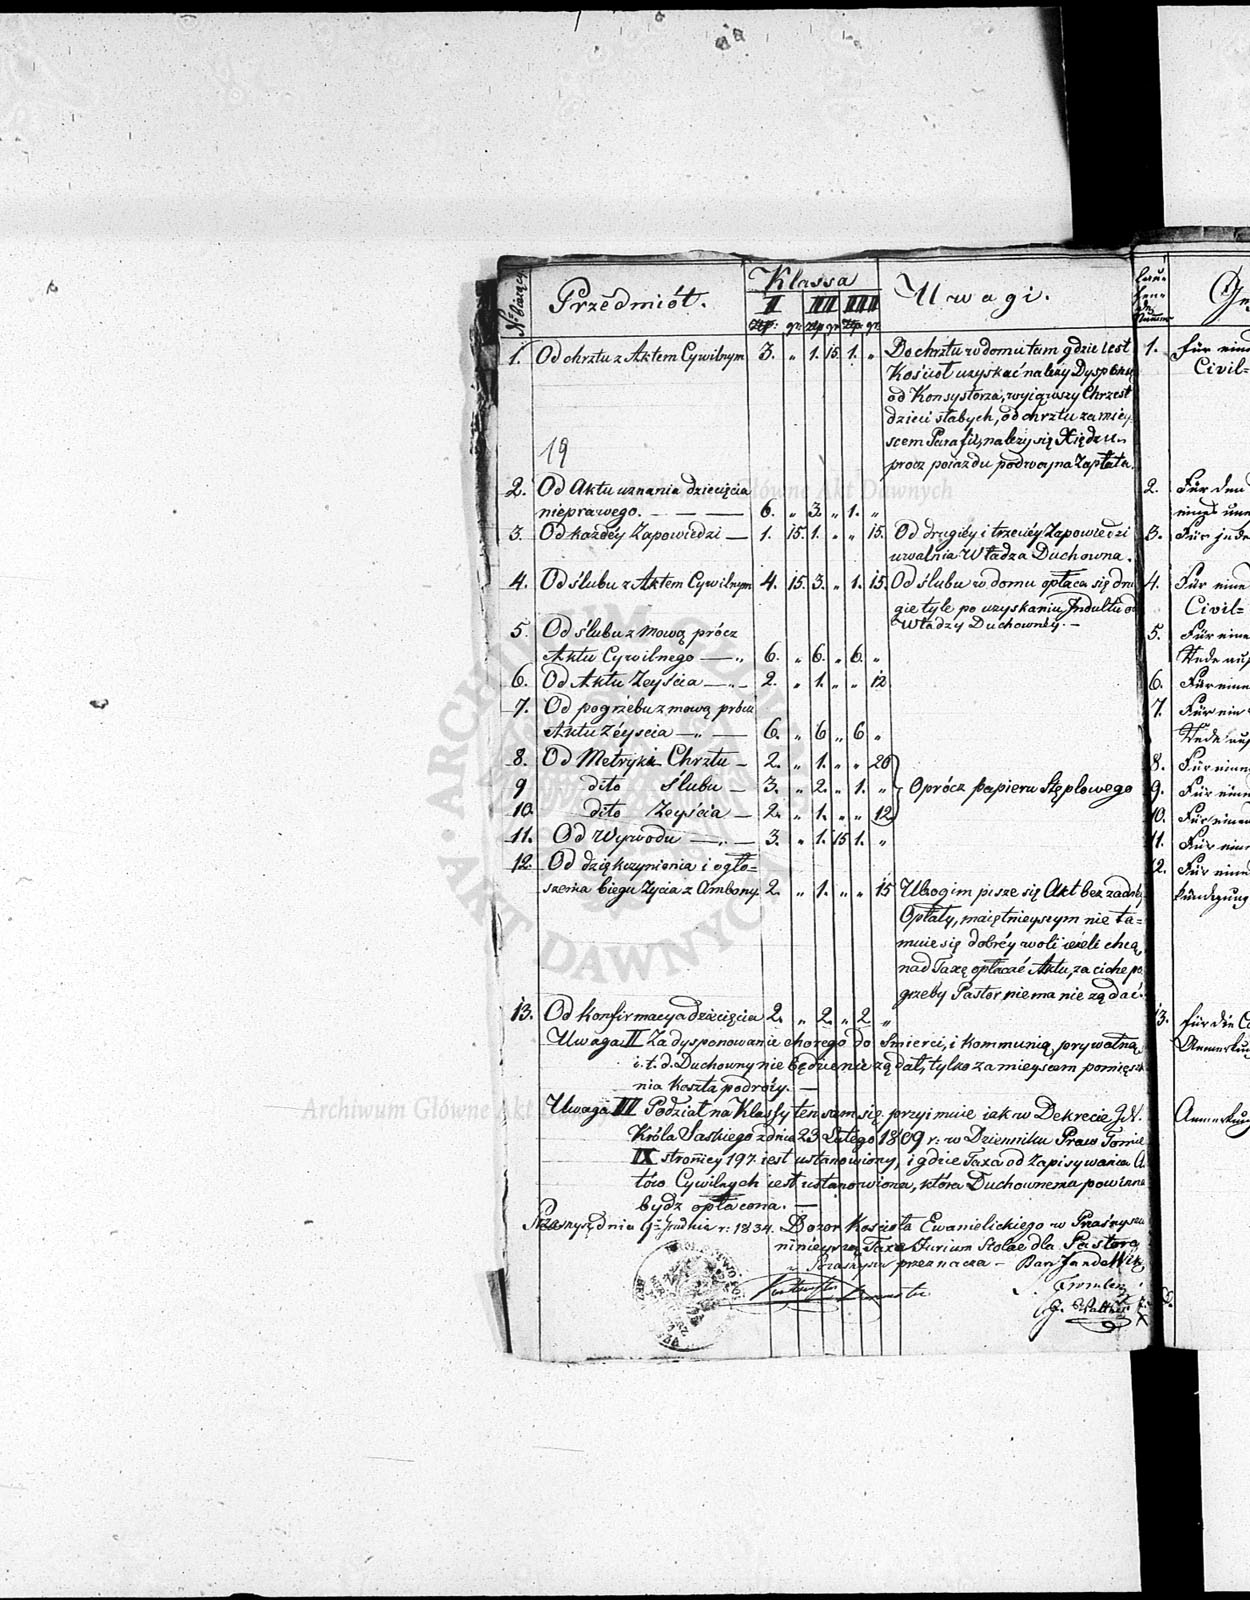 N° bieżący
Przedmiót.
Klassa
I II III
złp: gr. złp gr złp. gr.
Uwagi.
1. Od chrztu z Aktem Cywilnym 3. „ 1. 15. 1. „
Do chrztu w domu tam gdzie iest
Kościoł uzyskać należy Dyspensę
od Konsystorza, wyiąwszy Chrzest
dzieci słabych, od chrztu za miey-
scem Parafii, należy się Xiędzu
procz poiazdu podwoyna Zapłata.
19
2. Od Aktu uznania dziecięcia
nieprawego. 6. „ 3. „ 1. „
3. Od każdéy Zapowiedzi 1. 15. 1. „ „ 15.
Od drugiéy i trzeciéy Zapowiedzi
uwalnia Władza Duchowna.
4. Od ślubu z Aktem Cywilnym 4. 15. 3. „ 1. 15.
Od ślubu w domu opłaca się dru
gie tyle po uzyskaniu Indultu od
Władzy Duchownéy.
5. Od ślubu z mową prócz
Aktu Cywilnego 6. „ 6. „ 6. „
6. Od Aktu Zeyścia 2. „ 1. „ „ 12.
7. Od pogrzebu z mową prócz
Aktu Zéyscia 6. „ 6 „ 6 „
8. Od Metryki Chrztu 2. „ 1. „ „ 20
9 dito ślubu 3. „ 2. „ 1. „
Oprócz papieru Stęplowego
10. dito Zeyścia 2. „ 1. „ „ 12
11. Od Wywodu 3. „ 1. 15 1. „
12. Od dziękczynienia i ogło-
szenia biegu życia z Ambony. 2. „ 1. „ „ 15
Ubogim pisze się Akt bez żadnéy
Opłaty, maiętnieyszym nie ta-
muie się dobréy woli ieżeli chcą
nad Taxę opłacać Aktu, za ciche po
grzeby Pastor niema nic żądać.
13. Od Konfirmacyi dziecięcia 2. „ 2. „ 2 „
Uwaga II Za dysponowanie chorego do śmierci, i kommunią prywatną
i. t. d. Duchowny nie będzie nic żądał, tylko za mieyscem pomięszka
nia Koszta podróży.
Uwaga III Podział na Klassy ten sam się przyimuie iak w Dekrecie
Króla Saskiego z dnia 23 Lutego 1809 r: w Dzienniku Praw Tomie
IX stronicy 197 iest ustanowiony, i gdzie Taxa od Zapisywania A
tów Cywilnych iest ustanowiona, która Duchownemu powinna
bydz opłacona.
dnia 9 Grudnia r: 1834. Dozor Kościoła Ewanielickiego w Przasnyszu
ninieyszą Taxę Jurium Stolae dla Pastora
w Przasnyszu przeznacza
Lau-
fen-
de
Nummer
1. Für eine
Civil-
2. Für den
eines une
3. Für jede
4. Für eine
Civil-
5. Für eine
Rede auf
6. Für eine
7. Für ein
Rede auf
8. Für eine
9. Für eine
10. Für einen
11. Für eine
12. Für eine
kündigung
13. Für die Co
Anmerkung
Anmerkung
ARCHIWUM GŁÓWNE AKT DAWNYCH
Archiwum Główne Akt Dawnych
Archiwum Główne Akt